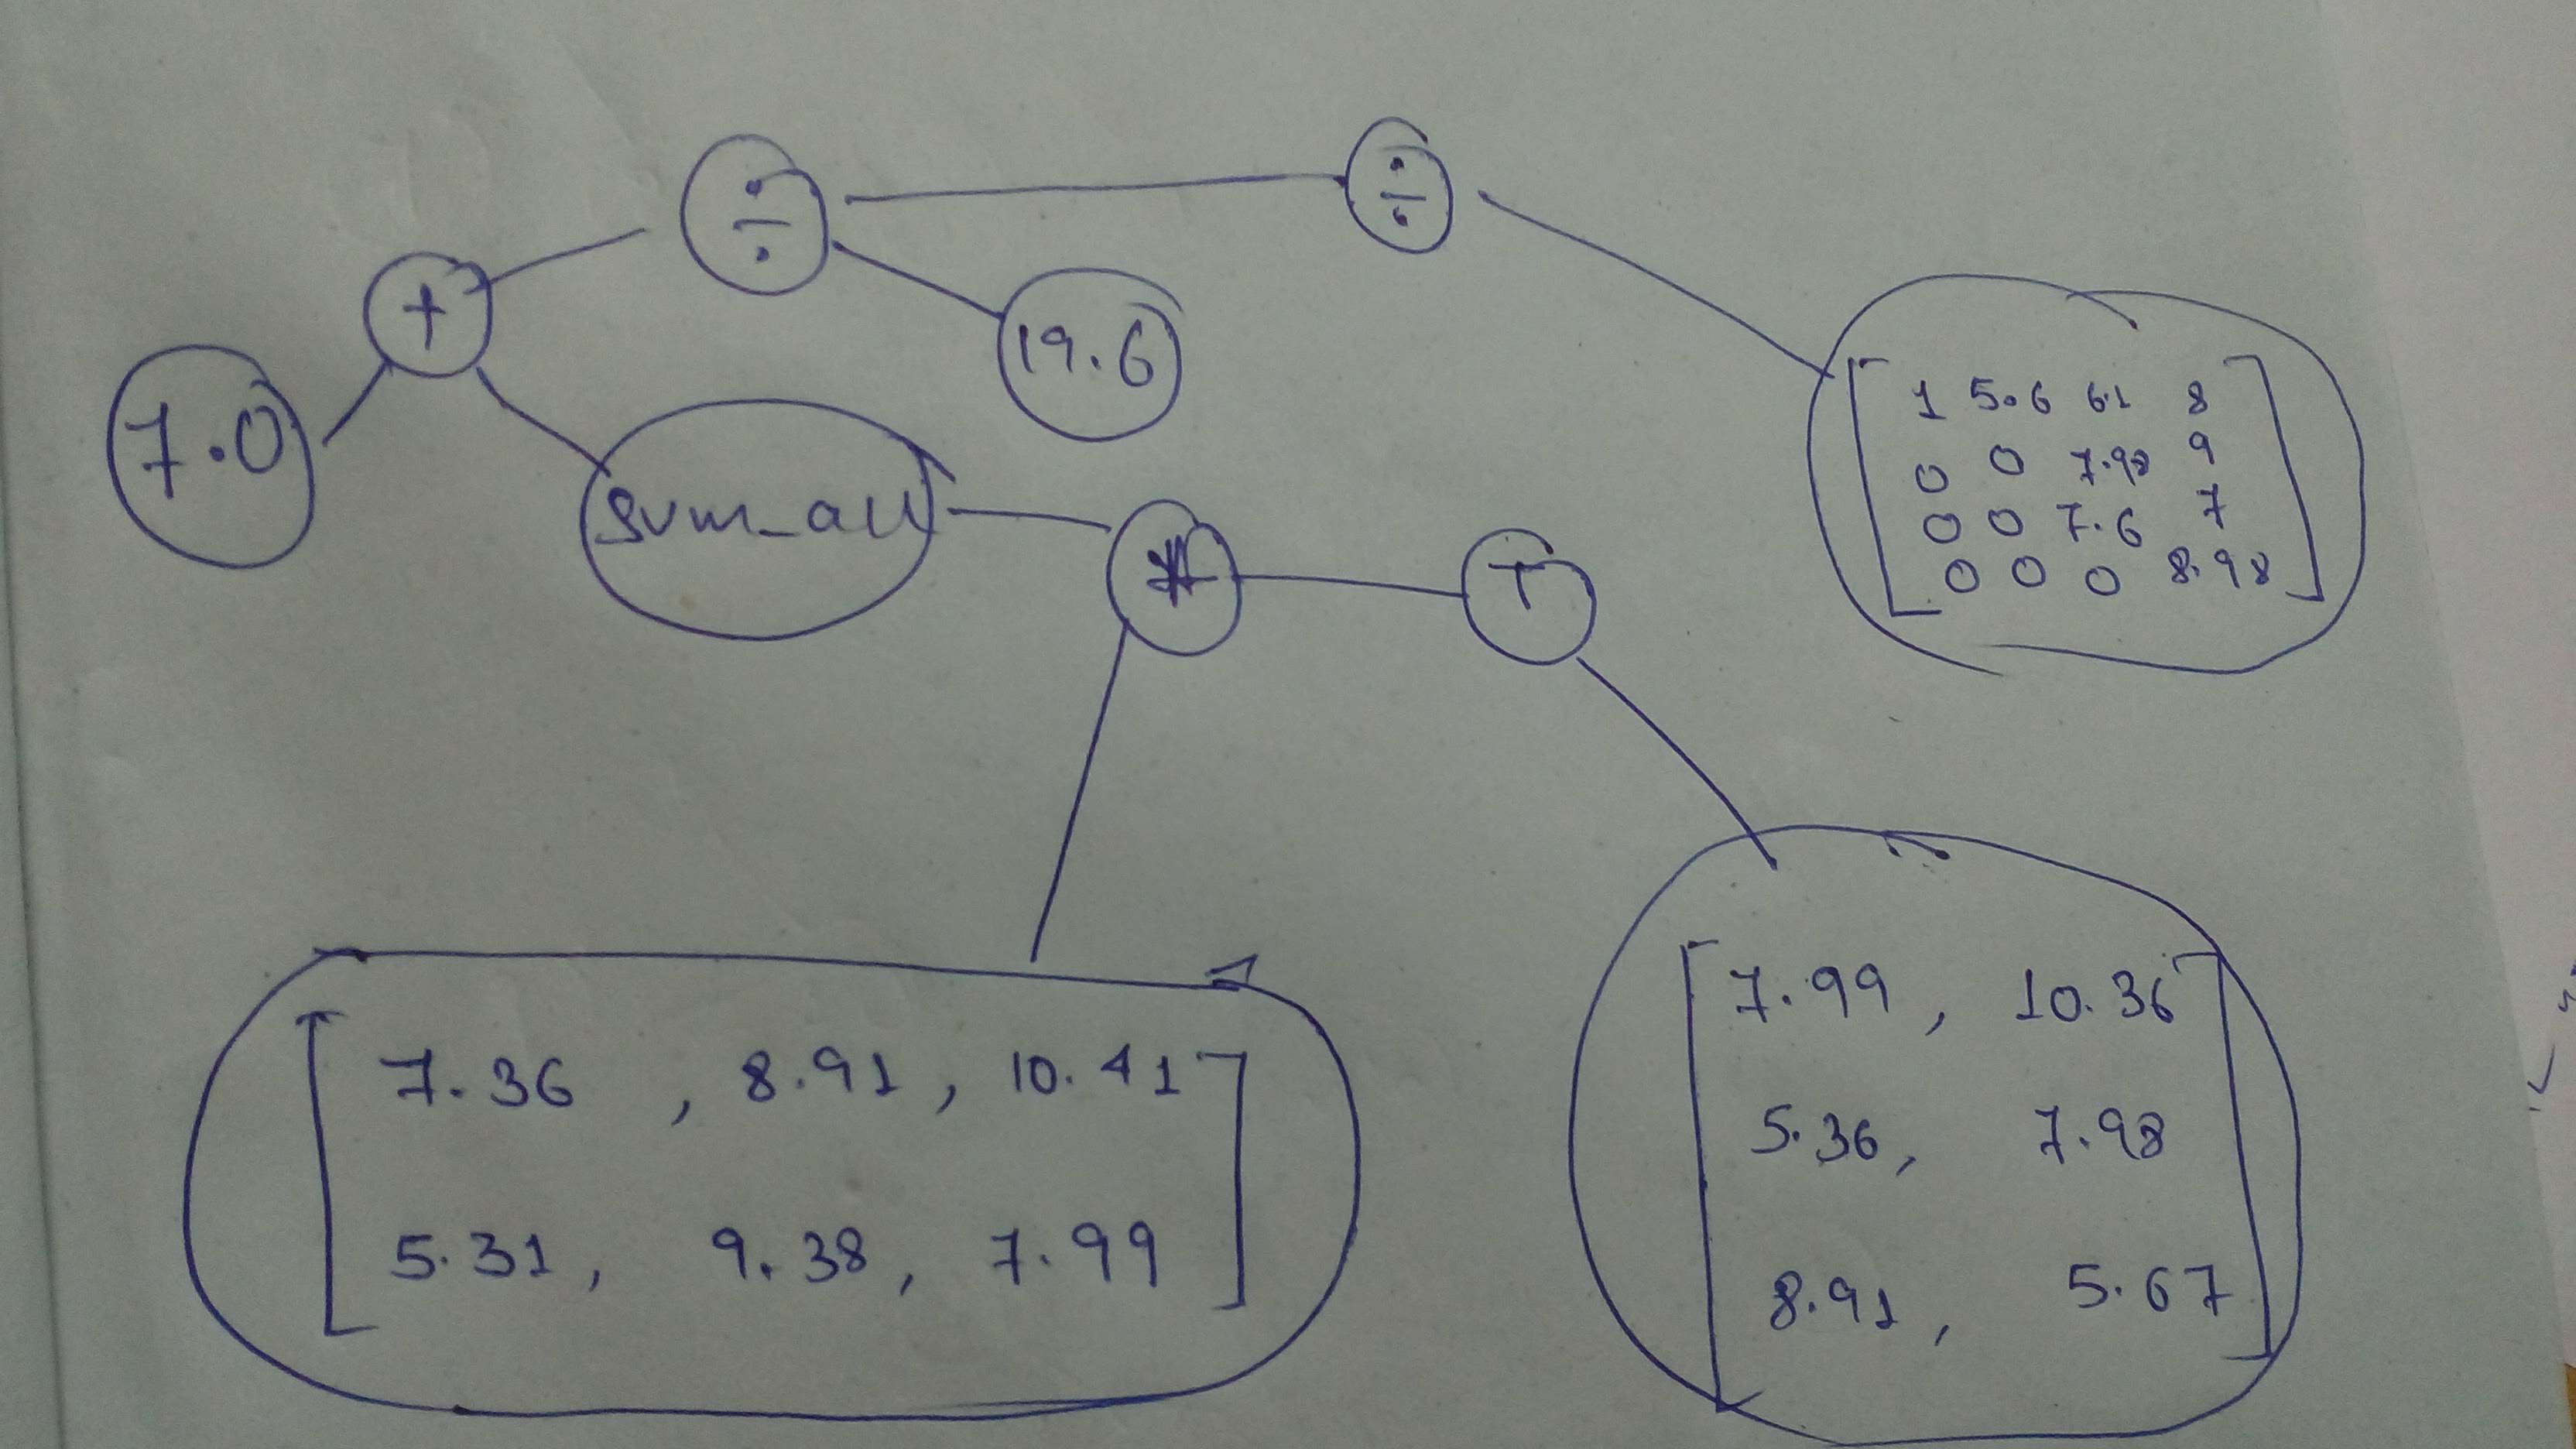 ÷
÷
+
19.6
7.0
sum_all
*
T
1 5.6 6.1 8
0 0 7.98 9
0 0 7.6 7
0 0 0 8.98
7.36 , 8.91 , 10.41
5.31 , 9.38 , 7.99
7.99 , 10.36
5.36 , 7.98
8.91 , 5.67